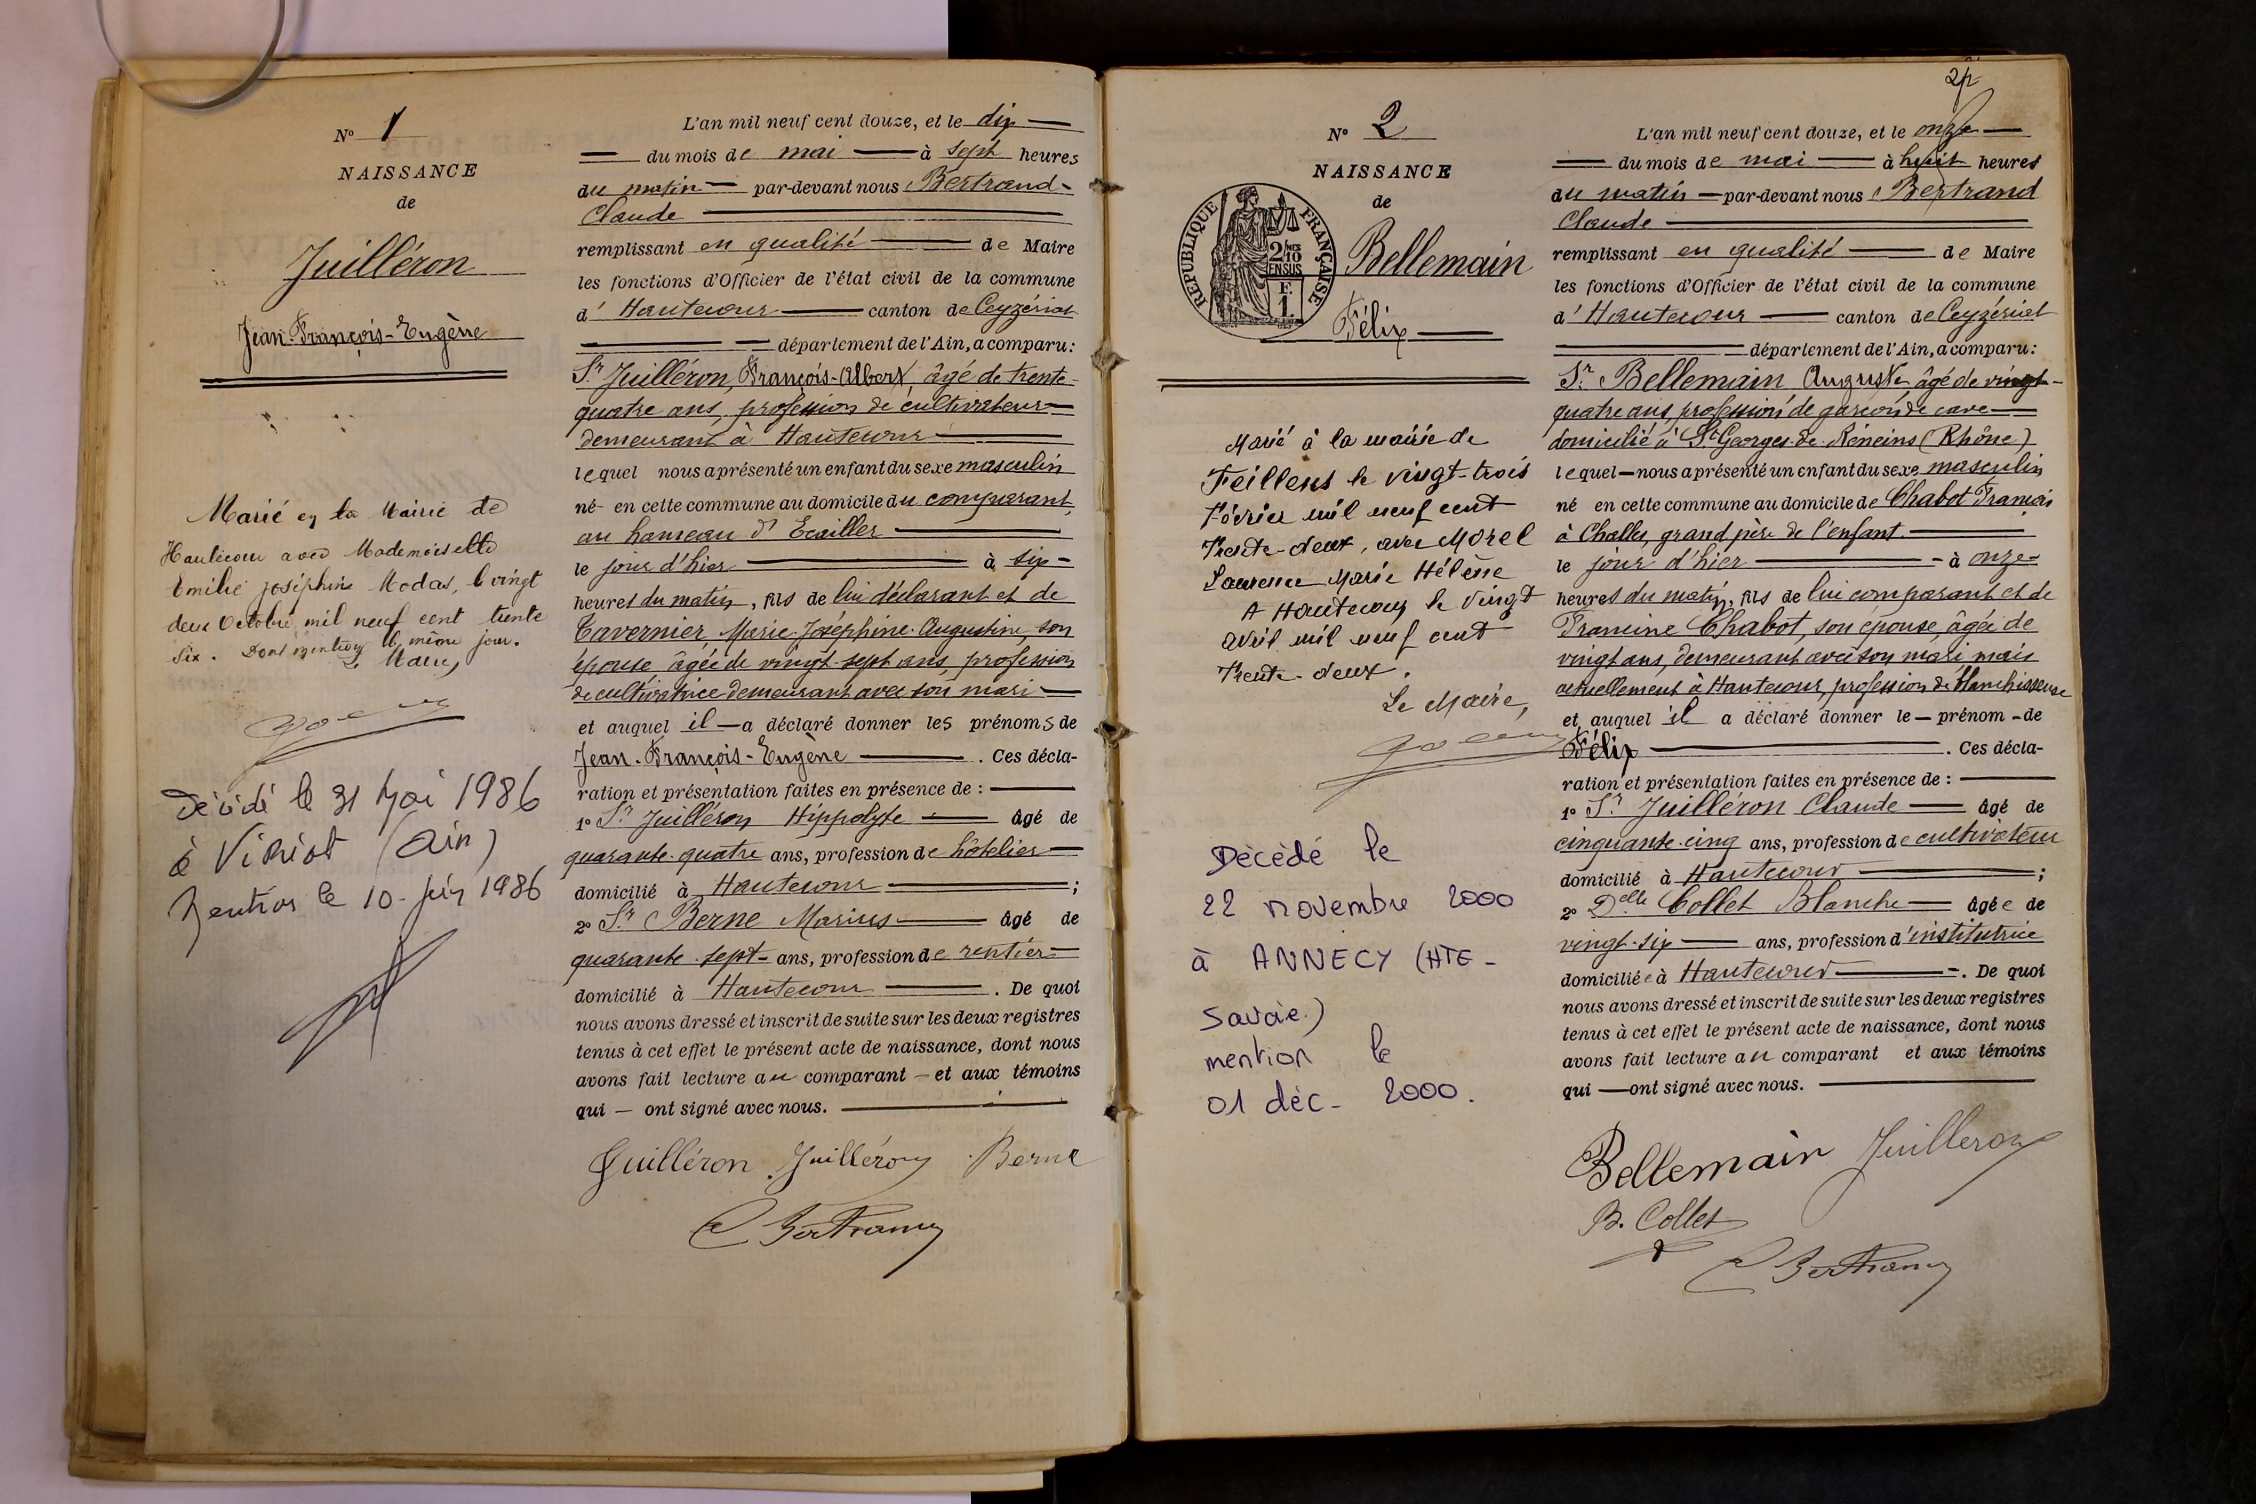 N° 1
NAISSANCE
de
Juilléron
Jean-François-Eugène
Marié en la Mairie de
Hautecour avec Mademoiselle
Emilie Joséphine Modas, le vingt
deux Octobre mil neuf cent trente
six. Dont mention le même jour.
Le Maire,
Décédé le 31 Mai 1986
à Viriat (Ain)
Mention le 10 Juin 1986
L'an mil neuf cent douze, et le dix
du mois de mai à sept heures
du matin par-devant nous Bertrand
Claude
remplissant en qualité de Maire
les fonctions d'Officier de l'état civil de la commune
d'Hautecour canton de Ceyzériat
département de l'Ain, a comparu:
Sr Juilléron, François-Albert, âgé de trente-
quatre ans, profession de cultivateur
demeurant à Hautecour
lequel nous a présenté un enfant du sexe masculin
né en cette commune au domicile du comparant,
au hameau d'Ecailler
le jour d'hier à six
heures du matin, fils de lui déclarant et de
Tavernier Marie-Joséphine-Augustine, son
épouse âgée de vingt-sept ans, profession
de cultivatrice demeurant avec son mari
et auquel il a déclaré donner les prénoms de
Jean-François-Eugène. Ces décla-
ration et présentation faites en présence de :
1° Sr Juilléron Hippolyte âgé de
quarante-quatre ans, profession de hôtelier
domicilié à Hautecour ;
2° Sr Berne Marius âgé de
quarante-sept ans, profession de rentier
domicilié à Hautecour. De quoi
nous avons dressé et inscrit de suite sur les deux registres
tenus à cet effet le présent acte de naissance, dont nous
avons fait lecture au comparant et aux témoins
qui ont signé avec nous.
Juilléron Juilléron Berne
C Bertrand
2
N° 2
NAISSANCE
de
RÉPUBLIQUE FRANÇAISE
2/10
EN SUS
F.
1.
Bellemain
Félix
Marié à la mairie de
Feillens le vingt-trois
Février mil neuf cent
Trente-deux, avec Morel
Laurence Marie Hélène
A Hautecour le vingt
avril mil neuf cent
Trente-deux.
Le Maire,
Décédé le
22 novembre 2000
à ANNECY (HTE-
Savoie)
mention le
01 déc- 2000.
L'an mil neuf cent douze, et le onze
du mois de mai à huit heures
du matin par-devant nous Bertrand
Claude
remplissant en qualité de Maire
les fonctions d'Officier de l'état civil de la commune
d'Hautecour canton de Ceyzériat
département de l'Ain, a comparu:
Sr Bellemain Auguste âgé de vingt-
quatre ans, profession de garçon de cave
domicilié à St Georges-de-Réneins (Rhône)
lequel nous a présenté un enfant du sexe masculin
né en cette commune au domicile de Chabot François
à Challes, grand père de l'enfant
le jour d'hier à onze
heures du matin, fils de lui comparant et de
Francine Chabot, son épouse, âgée de
vingt ans, demeurant avec son mari mais
actuellement à Hautecour, profession de blanchisseuse
et auquel il a déclaré donner le prénom de
Félix. Ces décla-
ration et présentation faites en présence de :
1° Sr Juilléron Claude âgé de
cinquante-cinq ans, profession de cultivateur
domicilié à Hautecour ;
2° Delle Collet Blanche âgée de
vingt-six ans, profession d'institutrice
domiciliée à Hautecour. De quoi
nous avons dressé et inscrit de suite sur les deux registres
tenus à cet effet le présent acte de naissance, dont nous
avons fait lecture au comparant et aux témoins
qui ont signé avec nous.
Bellemain Juilleron
B. Collet
C Bertrand